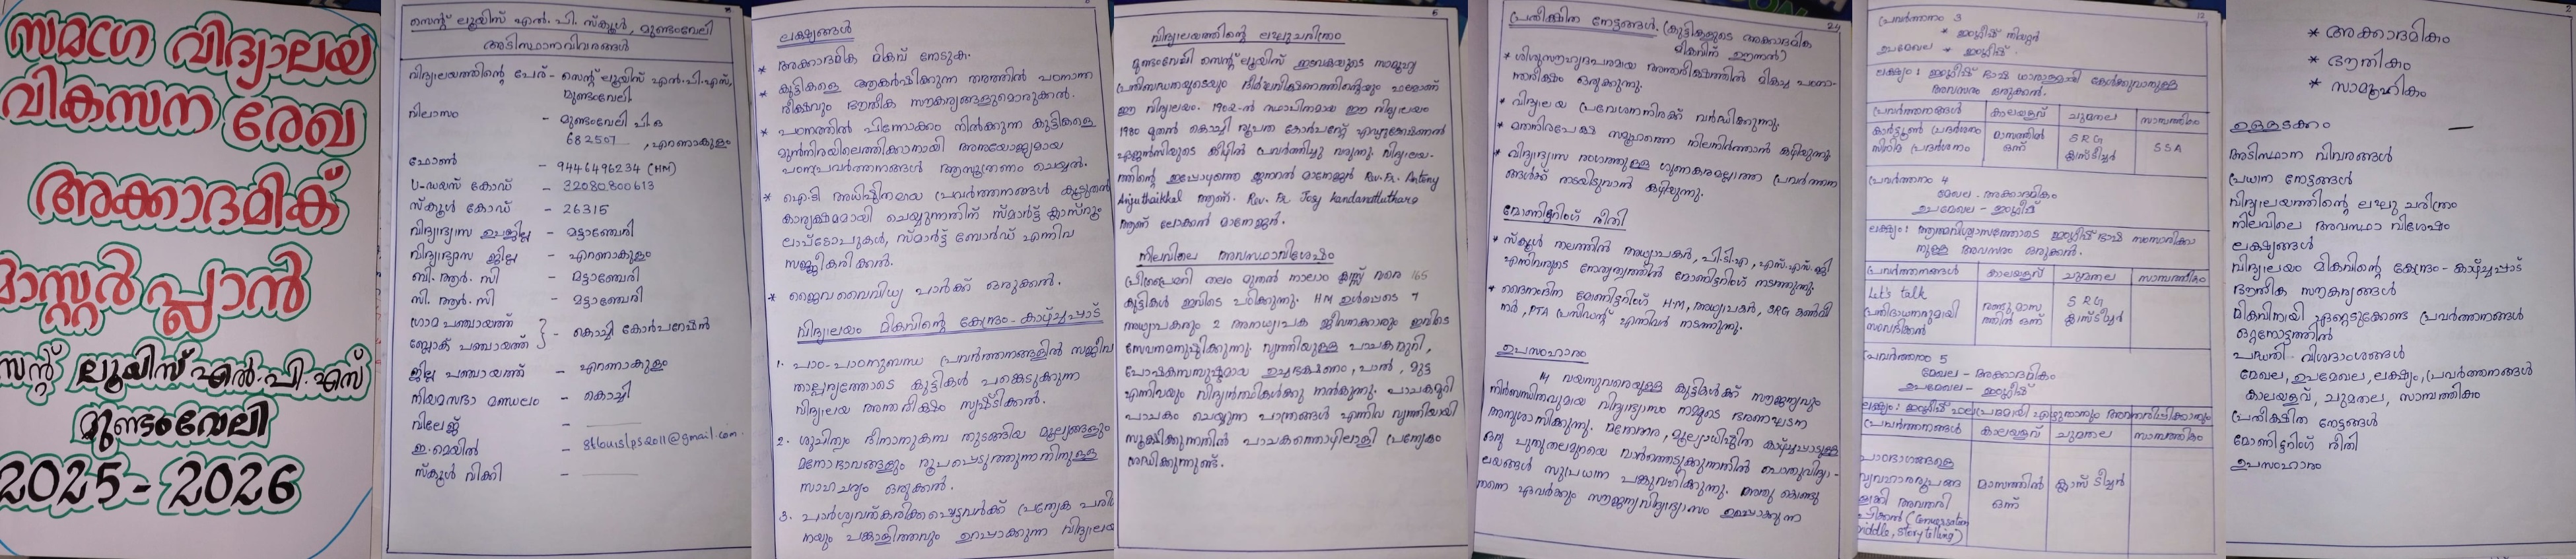 സമഗ്ര വിദ്യാലയ
വികസന രേഖ
അക്കാദമിക്
മാസ്റ്റർ പ്ലാൻ
സെന്റ് ലൂയിസ് എൽ.പി.എസ്
മുണ്ടംവേലി
2025-2026
സെന്റ് ലൂയിസ് എൽ.പി. സ്കൂൾ, മുണ്ടംവേലി
അടിസ്ഥാനവിവരങ്ങൾ
വിദ്യാലയത്തിന്റെ പേര് - സെന്റ് ലൂയിസ് എൻ.പി.എസ്,
മുണ്ടംവേലി
വിലാസം - മുണ്ടംവേലി പി.ഒ
682507 , എറണാകുളം
ഫോൺ - 9446496234 (HM)
U-ഡയസ് കോഡ് - 32080800613
സ്കൂൾ കോഡ് - 26315
വിദ്യാഭ്യാസ ഉപജില്ല - മട്ടാഞ്ചേരി
വിദ്യാഭ്യാസ ജില്ല - എറണാകുളം
ബി.ആർ.സി - മട്ടാഞ്ചേരി
സി.ആർ.സി - മട്ടാഞ്ചേരി
ഗ്രാമ പഞ്ചായത്ത്
ബ്ലോക് പഞ്ചായത്ത് } - കൊച്ചി കോർപറേഷൻ
ജില്ല പഞ്ചായത്ത് - എറണാകുളം
നിയമസഭാ മണ്ഡലം - കൊച്ചി
വില്ലേജ് -
ഇ.മെയിൽ - stlouislps2011@gmail.com
സ്കൂൾ വിക്കി -
ലക്ഷ്യങ്ങൾ
* അക്കാദമിക മികവ് നേടുക.
* കുട്ടികളെ ആകർഷിക്കുന്ന തരത്തിൽ പഠനാന്ത
രീക്ഷവും ഭൗതിക സൗകര്യങ്ങളുമൊരുക്കൽ.
* പഠനത്തിൽ പിന്നോക്കം നിൽക്കുന്ന കുട്ടികളെ
മുൻനിരയിലെത്തിക്കാനായി അനുയോജ്യമായ
പഠനപ്രവർത്തനങ്ങൾ ആസൂത്രണം ചെയ്യൽ.
* ഐ.ടി അധിഷ്ഠിതമായ പ്രവർത്തനങ്ങൾ കൂടുതൽ
കാര്യക്ഷമമായി ചെയ്യുന്നതിന് സ്മാർട്ട് ക്ലാസ്റൂം
ലാപ്ടോപുകൾ, സ്മാർട്ട് ബോർഡ് എന്നിവ
സജ്ജീകരിക്കൽ.
* ജൈവ വൈവിധ്യ പാർക്ക് ഒരുക്കൽ.
വിദ്യാലയം മികവിന്റെ കേന്ദ്രം - കാഴ്ച്ചപ്പാട്
1. പാഠ-പാഠാനുബന്ധ പ്രവർത്തനങ്ങളിൽ സജീവ
താല്പര്യത്തോടെ കുട്ടികൾ പങ്കെടുക്കുന്ന
വിദ്യാലയ അന്തരീക്ഷം സൃഷ്ടിക്കൽ.
2. ശുചിത്വം ദീനാനുകമ്പ തുടങ്ങിയ മൂല്യങ്ങളും
മനോഭാവങ്ങളും രൂപപ്പെടുത്തുന്നതിനുള്ള
സാഹചര്യം ഒരുക്കൽ.
3. പാർശ്വവത്കരിക്കപ്പെട്ടവർക്ക് പ്രത്യേക പരി
നയും പങ്കാളിത്തവും ഉറപ്പാക്കുന്ന വിദ്യാലയ
6
വിദ്യാലയത്തിന്റെ ലഘുചരിത്രം
മുണ്ടംവേലി സെന്റ് ലൂയിസ് ഇടവകയുടെ സാമൂഹ്യ
പ്രതിബദ്ധതയുടെയും ദീർഘവീക്ഷണത്തിന്റെയും ഫലമാണ്
ഈ വിദ്യാലയം. 1902-ൽ സ്ഥാപിതമായ ഈ വിദ്യാലയം
1980 മുതൽ കൊച്ചി രൂപത കോർപ്പറേറ്റ് എഡ്യുക്കേഷണൽ
ഏജൻസിയുടെ കീഴിൽ പ്രവർത്തിച്ചു വരുന്നു. വിദ്യാലയ-
ത്തിന്റെ ഇപ്പോഴത്തെ ജനറൽ മാനേജർ Rev.Fr. Antony
Anjuthaikkal ആണ്. Rev. Fr. Josy Kandanattuthara
ആണ് ലോക്കൽ മാനേജർ.
നിലവിലെ അവസ്ഥാവിശേഷം
പ്രീപ്രൈമറി തലം മുതൽ നാലാം ക്ലാസ്സ് വരെ 165
കുട്ടികൾ ഇവിടെ പഠിക്കുന്നു. HM ഉൾപ്പെടെ 7
അധ്യാപകരും 2 അനധ്യാപക ജീവനക്കാരും ഇവിടെ
സേവനമനുഷ്ഠിക്കുന്നു. വൃത്തിയുള്ള പാചകമുറി,
പോഷകസമ്പുഷ്ടമായ ഉച്ചഭക്ഷണം, പാൽ, മുട്ട
എന്നിവയും വിദ്യാർത്ഥികൾക്കു നൽകുന്നു. പാചകമുറി
പാചകം ചെയ്യുന്ന പാത്രങ്ങൾ എന്നിവ വൃത്തിയായി
സൂക്ഷിക്കുന്നതിൽ പാചകത്തൊഴിലാളി പ്രത്യേകം
ശ്രദ്ധിക്കുന്നുണ്ട്.
24
പ്രതീക്ഷിത നേട്ടങ്ങൾ. (കുട്ടികളുടെ അക്കാദമിക
മികവിന് ഊന്നൽ)
* ശിശുസൗഹൃദപരമായ അന്തരീക്ഷത്തിൽ മികച്ച പഠനാ-
ന്തരീക്ഷം ഒരുക്കുന്നു.
* വിദ്യാലയ പ്രവേശനനിരക്ക് വർദ്ധിക്കുന്നു.
* മതനിരപേക്ഷ സമൂഹത്തെ നിലനിർത്താൻ കഴിയുന്നു
* വിദ്യാഭ്യാസ രംഗത്തുള്ള ഗുണകരമല്ലാത്ത പ്രവർത്തന
ങ്ങൾക്ക് തടയിടുവാൻ കഴിയുന്നു.
മോണിറ്ററിംഗ് രീതി
* സ്കൂൾ തലത്തിൽ അധ്യാപകർ, പി.ടി.എ, എസ്.എസ്.ജി
എന്നിവരുടെ നേതൃത്വത്തിൽ മോണിട്ടറിംഗ് നടത്തുന്നു.
* ദൈനംദിന മോണിട്ടറിംഗ് H.M, അധ്യാപകർ, SRG കൺവീ
നർ, PTA പ്രസിഡന്റ് എന്നിവർ നടത്തുന്നു.
ഉപസംഹാരം
14 വയസുവരെയുള്ള കുട്ടികൾക്ക് സൗജന്യവും
നിർബന്ധിതവുമായ വിദ്യാഭ്യാസം നമ്മുടെ ഭരണഘടന
അനുശാസിക്കുന്നു. മതേതര, മൂല്യാധിഷ്ഠിത കാഴ്ച്ചപ്പാടുള്ള
ഒരു പുതുതലമുറയെ വാർത്തെടുക്കുന്നതിൽ പൊതുവിദ്യാ-
ലയങ്ങൾ സുപ്രധാന പങ്കുവഹിക്കുന്നു. അതു കൊണ്ടു
തന്നെ ഏവർക്കും സൗജന്യവിദ്യാഭ്യാസം ഉറപ്പാക്കുന്ന
12
പ്രവർത്തനം 3
* ഇംഗ്ലീഷ് തിയറ്റർ
ഉപമേഖല * ഇംഗ്ലീഷ്
ലക്ഷ്യം: ഇംഗ്ലീഷ് ഭാഷ ധാരാളമായി കേൾക്കുവാനുള്ള
അവസരം ഒരുക്കൽ.
പ്രവർത്തനങ്ങൾ കാലയളവ് ചുമതല സാമ്പത്തികം
കാർട്ടൂൺ പ്രദർശനം മാസത്തിൽ SRG SSA
സിനിമ പ്രദർശനം ഒന്ന് ക്ലാസ്ടീച്ചർ
പ്രവർത്തനം 4
മേഖല - അക്കാദമികം
ഉപമേഖല - ഇംഗ്ലീഷ്
ലക്ഷ്യം: ആത്മവിശ്വാസത്തോടെ ഇംഗ്ലീഷ് ഭാഷ സംസാരിക്കാ
നുള്ള അവസരം ഒരുക്കൽ.
പ്രവർത്തനങ്ങൾ കാലയളവ് ചുമതല സാമ്പത്തികം
Let's talk രണ്ടു മാസ SRG
ത്തിൽ ഒന്ന് ക്ലാസ്ടീച്ചർ
പ്രവർത്തനം 5
മേഖല - അക്കാദമികം
ഉപമേഖല - ഇംഗ്ലീഷ്
ലക്ഷ്യം: ഇംഗ്ലീഷ് ഫലപ്രദമായി എഴുതാനും അവതരിപ്പിക്കാനും
പ്രവർത്തനങ്ങൾ കാലയളവ് ചുമതല സാമ്പത്തികം
പാഠഭാഗങ്ങളെ
വ്യവഹാരരൂപങ്ങ മാസത്തിൽ ക്ലാസ് ടീച്ചർ
ളാക്കി അവതരി ഒന്ന്
പ്പിക്കൽ (Conversation
riddle, story telling)
2
* അക്കാദമികം
* ഭൗതികം
* സാമൂഹികം
ഉള്ളടക്കം
അടിസ്ഥാന വിവരങ്ങൾ
പ്രധാന നേട്ടങ്ങൾ
വിദ്യാലയത്തിന്റെ ലഘു ചരിത്രം
നിലവിലെ അവസ്ഥാ വിശേഷം
ലക്ഷ്യങ്ങൾ
വിദ്യാലയം മികവിന്റെ കേന്ദ്രം - കാഴ്ച്ചപ്പാട്
ഭൗതിക സൗകര്യങ്ങൾ
മികവിനായി ഏറ്റെടുക്കേണ്ട പ്രവർത്തനങ്ങൾ
ഒറ്റനോട്ടത്തിൽ
പദ്ധതി വിശദാംശങ്ങൾ
മേഖല, ഉപമേഖല, ലക്ഷ്യം, പ്രവർത്തനങ്ങൾ
കാലയളവ്, ചുമതല, സാമ്പത്തികം
പ്രതീക്ഷിത നേട്ടങ്ങൾ
മോണിറ്ററിംഗ് രീതി
ഉപസംഹാരം